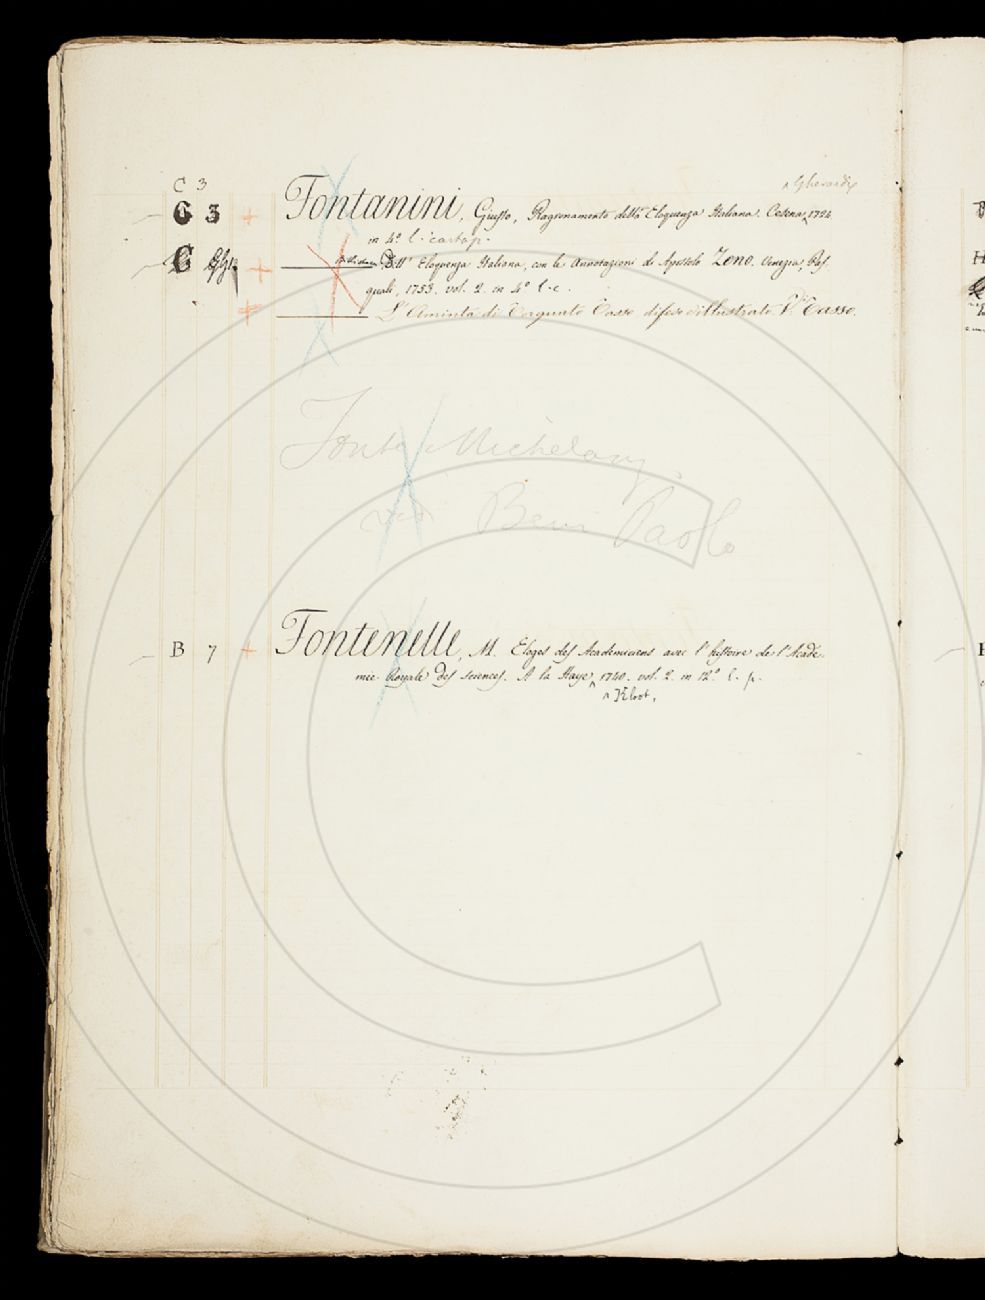 C 3
^ Gherardi
C 3 + Fontanini, Giusto, Ragionamento della Eloquenza Italiana. Cesena ^ 1724
in 4.º l.
C + Dell' Eloquenza Italiana, con le Annotazioni di Apostolo Zeno. Venezia, Pas-
quali, 1753. vol. 2. in 4º l. c.
+ L'Aminta di Torquato Tasso difeso e illustrato. V. Tasso.
Fonte Michelang.
ved Beni Paolo
B 7 + Fontenelle, M. Eloges des Academiciens avec l'histoire de l'Acadé-
mie Royale des sciences. A la Haye ^ 1740. vol. 2. in 12º l. p.
^ Kloot,